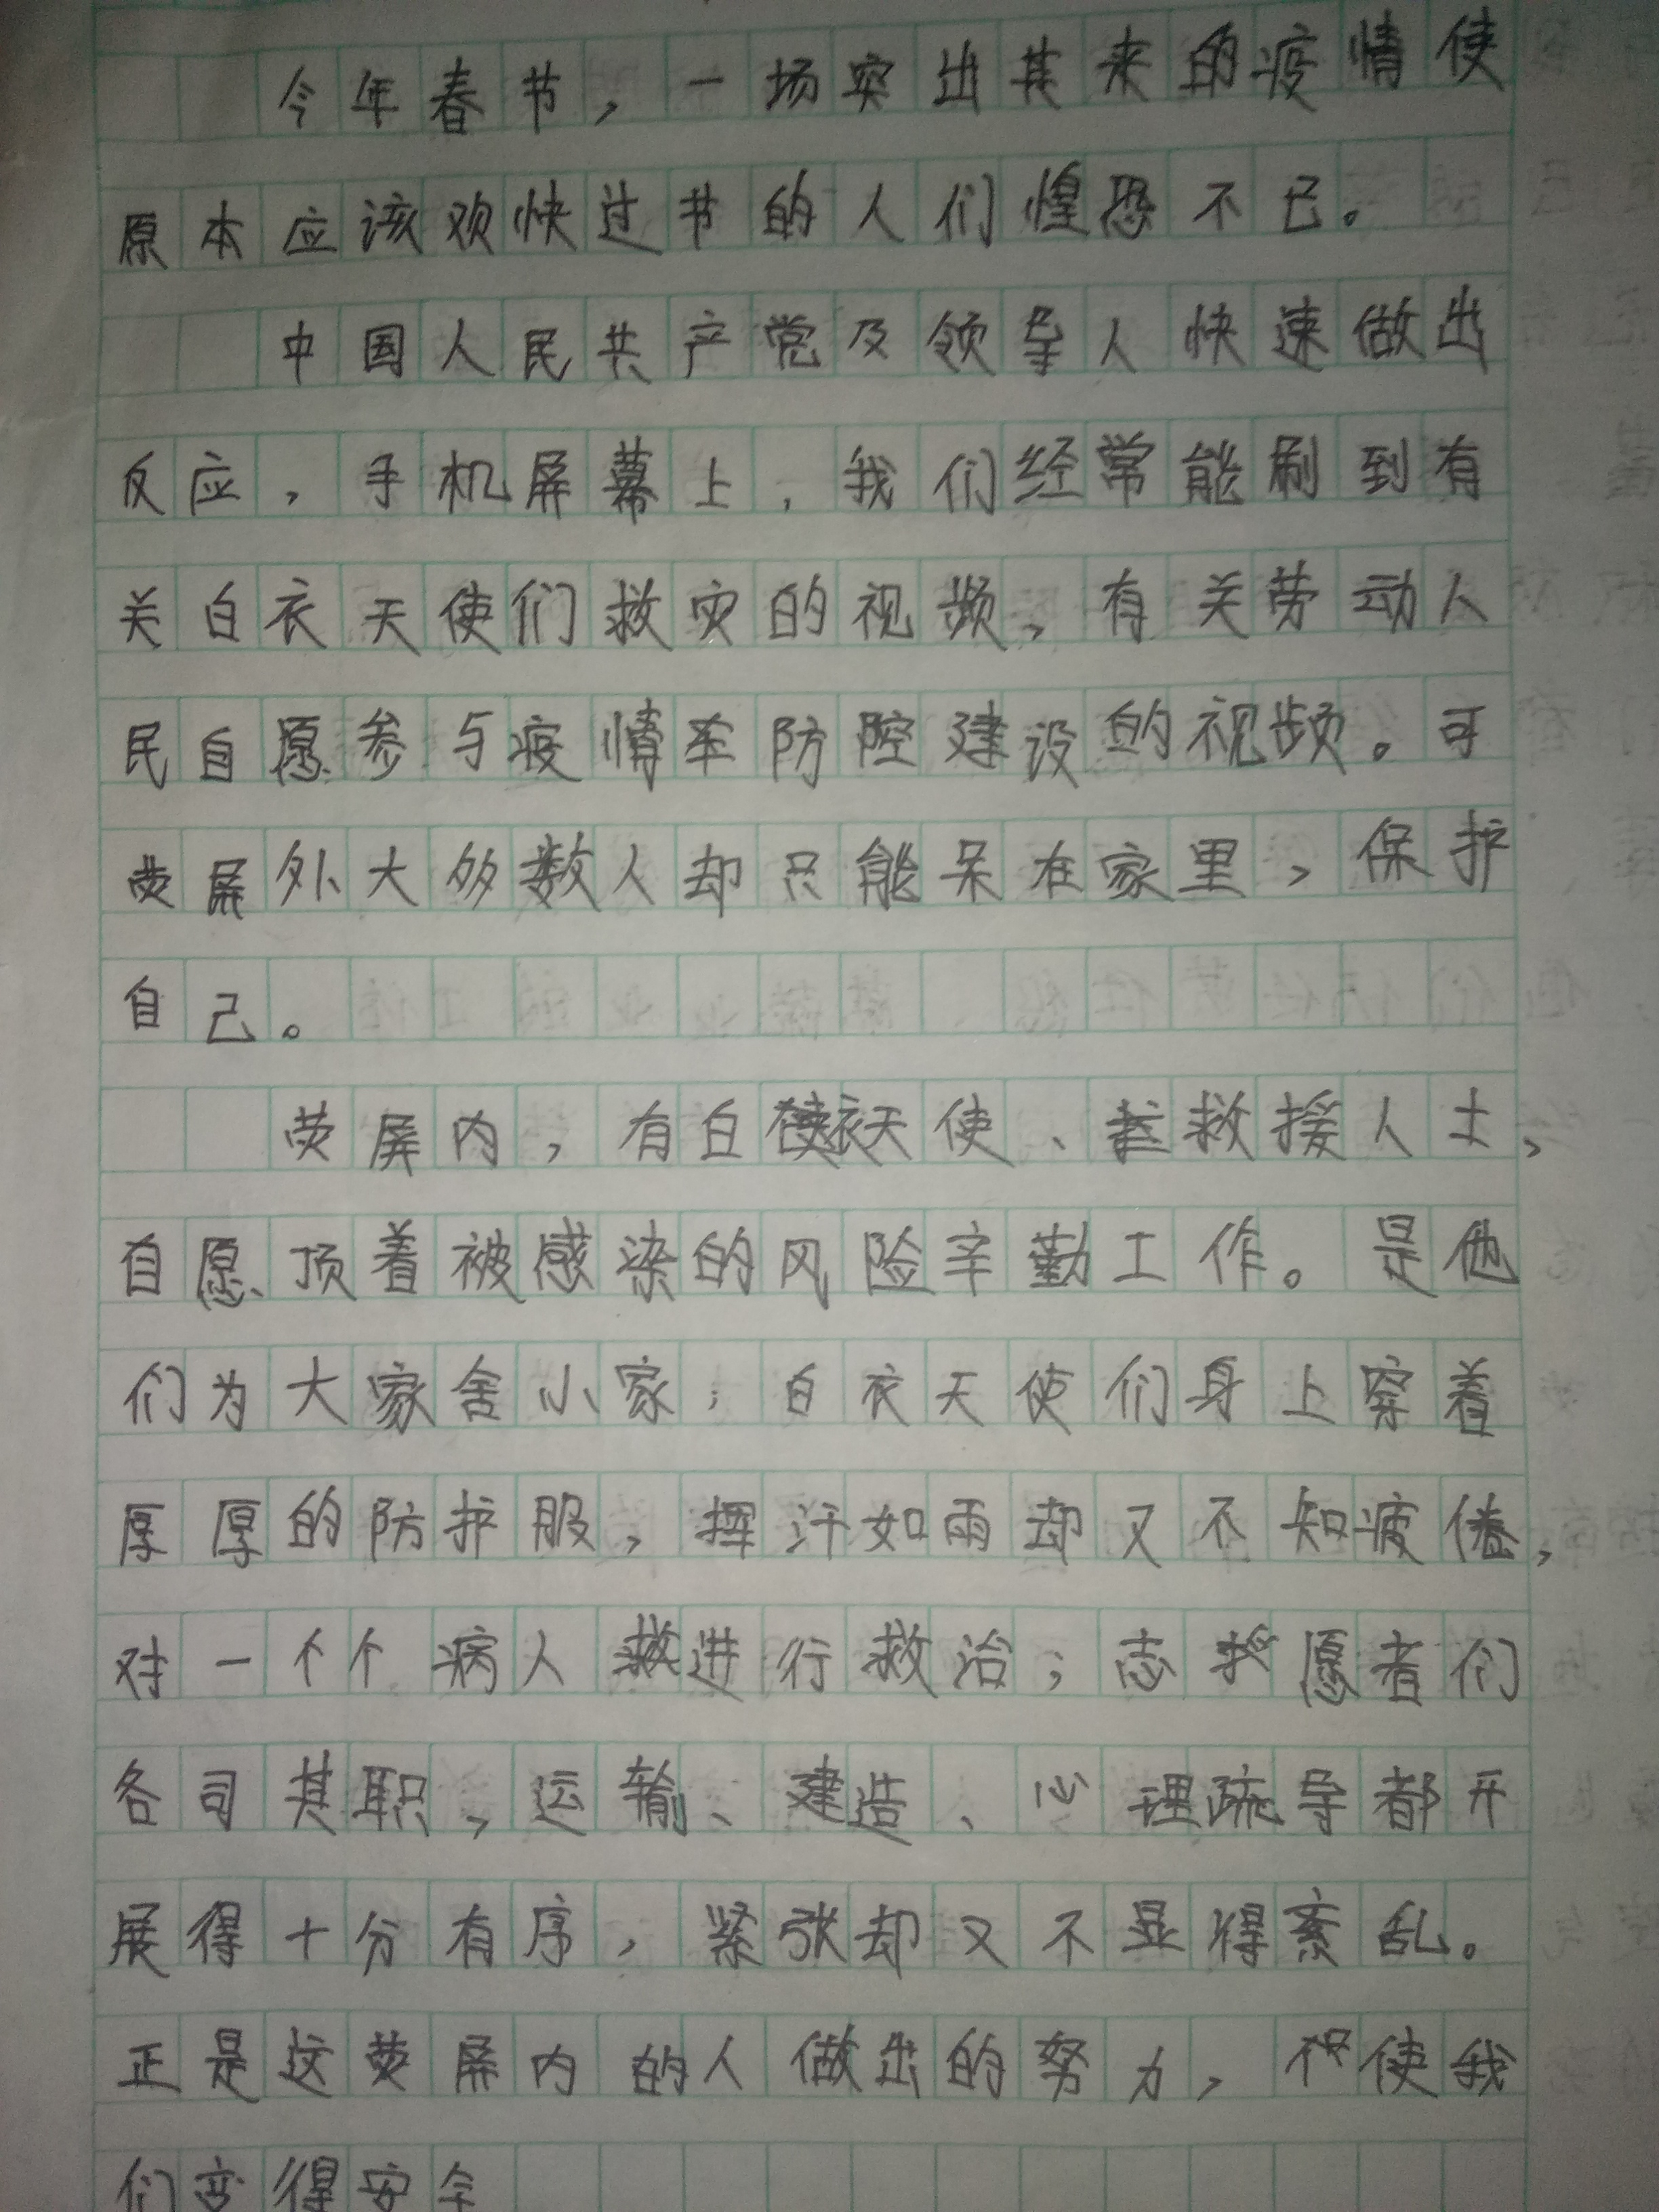 今年春节，一场突出其来的疫情使
原本应该欢快过节的人们惶恐不已。
中国人民共产党及领导人快速做出
反应，手机屏幕上，我们经常能刷到有
关白衣天使们救灾的视频，有关劳动人
民自愿参与疫情防控建设的视频。可
荧屏外大多数人却只能呆在家里，保护
自己。
荧屏内，有白衣天使、救援人士，
自愿顶着被感染的风险辛勤工作。是他
们为大家舍小家；白衣天使们身上穿着
厚厚的防护服，挥汗如雨却又不知疲倦，
对一个个病人进行救治；志愿者们
各司其职，运输、建造、心理疏导都开
展得十分有序，紧张却又不显得紊乱。
正是这荧屏内的人做出的努力，使我
们变得安全